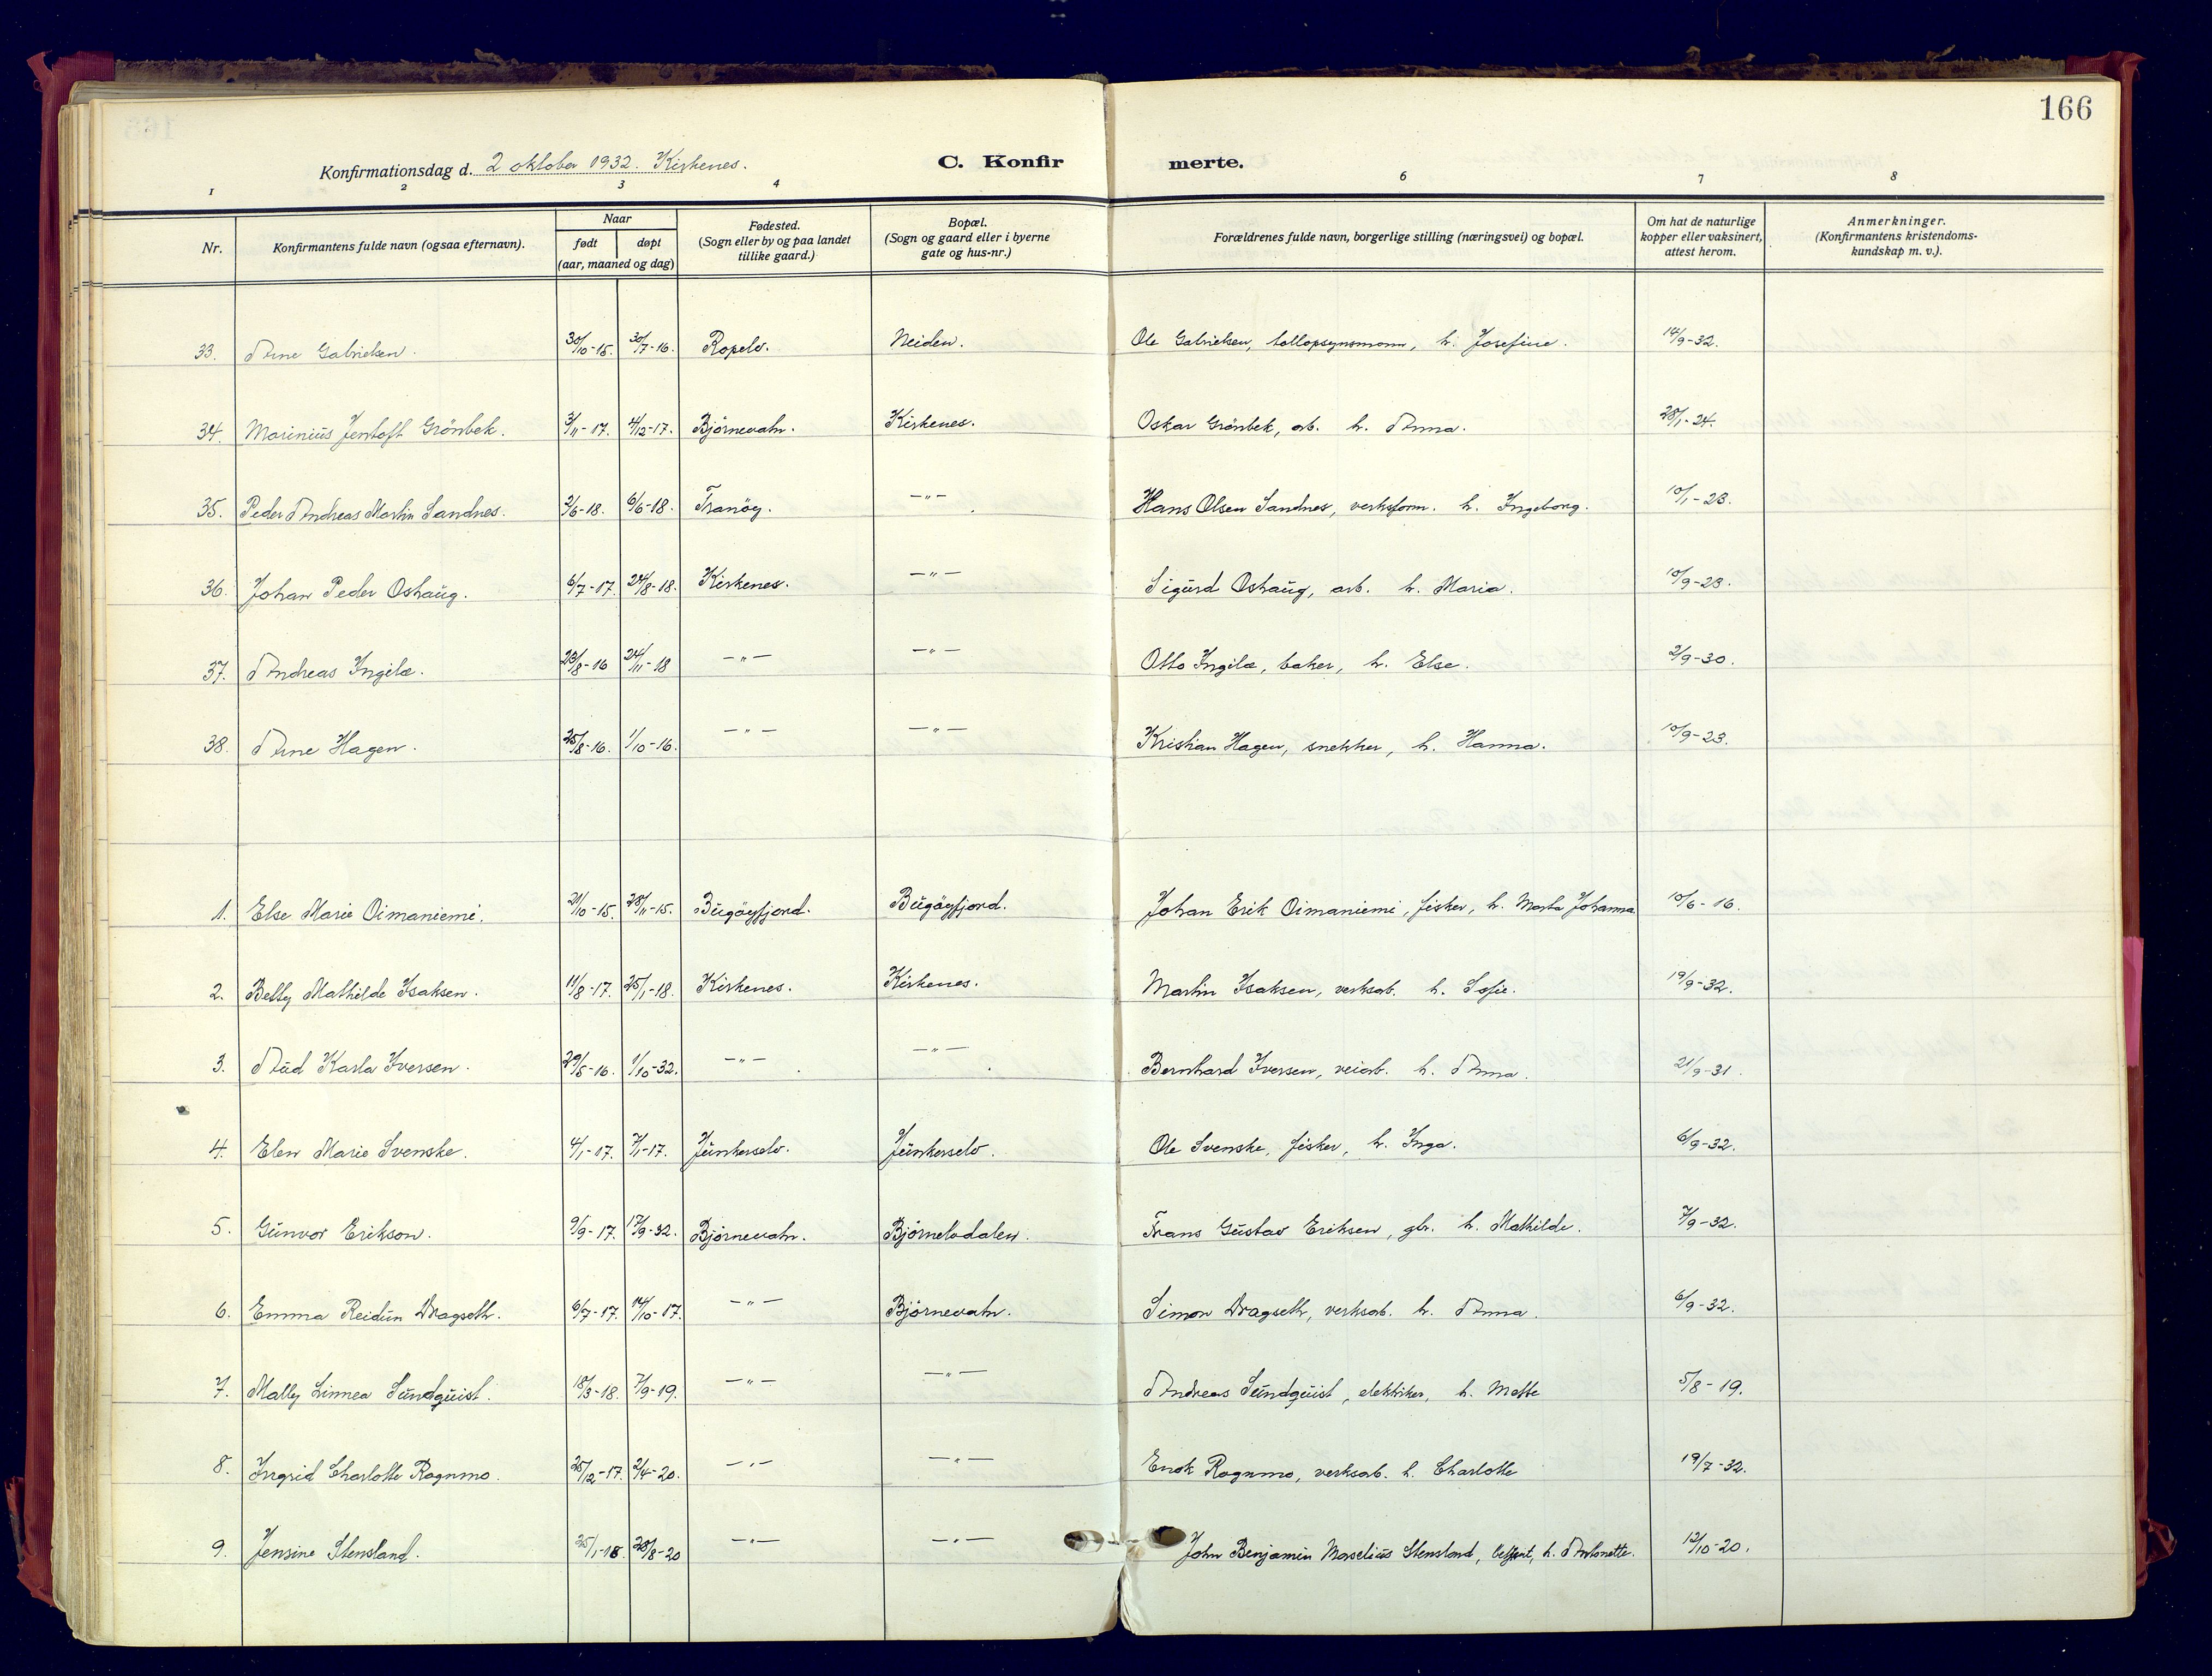 166
Konfirmationsdag d. 2 oktober 1932. Kirkenes.
C. Konfirmerte.
1 2 3 4 6 7 8
Nr. Konfirmantens fulde navn (ogsaa efternavn). Naar født døpt (aar, maaned og dag) Fødested. (Sogn eller by og paa landet tillike gaard.) Bopæl. (Sogn og gaard eller i byerne gate og hus-nr.) Forældrenes fulde navn, borgerlige stilling (næringsvei) og bopæl. Om hat de naturlige kopper eller vaksinert, attest herom. Anmerkninger. (Konfirmantens kristendoms-kundskap m. v.).
33. Arne Gabrielsen. 30/10-15. 30/7-16. Ropelv. Neiden. Ole Gabrielsen, tollopsynsmann, h. Josefine. 14/9-32.
34. Marinius Jentoft Grönbek. 3/11-17. 4/12-17. Björnevatn. Kirkenes. Oskar Grönbek, arb. h. Anna. 28/1-24.
35. Peder Andreas Martin Sandnes. 2/6-18. 6/6-18. Tranöy. -"- Hans Olsen Sandnes, verksform. h. Ingeborg. 10/1-23.
36. Johan Peder Oshaug. 6/7-17. 24/8-18. Kirkenes. -"- Sigurd Oshaug, arb. h. Maria. 10/9-23.
37. Andreas Ingilæ. 23/8-16 24/11-18 -"- -"- Otto Ingilæ, baker, h. Else. 2/9-30.
38. Arne Hagen. 25/8-16. 1/10-16. -"- -"- Kristian Hagen, snekker, h. Hanna. 10/9-23.
1. Else Marie Oimaniemi. 21/10-15. 28/11-15. Bugöyfjord. Bugöyfjord. Johan Erik Oimaniemi, fisker, h. Marta Johanna. 10/6-16.
2. Betty Mathilde Isaksen. 11/8-17. 25/1-18. Kirkenes. Kirkenes. Martin Isaksen, verksarb. h. Sofie. 19/9-32.
3. Aud Karla Iversen. 29/5-16. 1/10-32. -"- -"- Bernhard Iversen, veiarb. h. Anna. 21/9-31.
4. Elen Marie Svenske. 4/1-17. 7/1-17. Junkerselv. Junkerselv. Ole Svenske, fisker, h. Inga. 6/9-32.
5. Gunvor Erikson. 9/9-17. 17/9-32. Björnevatn. Björnelvdalen. Frans Gustav Eriksen, gbr. h. Mathilde. 7/9-32.
6. Emma Reidun Dragseth. 6/7-17. 14/10-17. -"- Björnevatn. Simon Dragseth, verksarb. h. Anna. 6/9-32.
7. Mally Linnea Sundquist. 18/3-18. 7/9-19. -"- -"- Andreas Sundquist, elektriker, h. Mette 5/8-19.
8. Ingrid Charlotte Rognmo. 25/12-17. 2/4-20. -"- -"- Enok Rognmo, verksarb. h. Charlotte 19/7-32.
9. Jensine Stensland. 25/1-18. 28/8-20 -"- -"- John Benjamin Marselius Stensland, h. Antonette. 12/10-20.